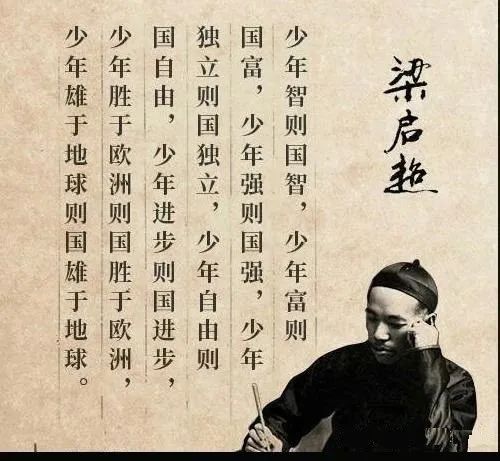 梁启超
少年智则国智，少年富则
国富，少年强则国强，少年
独立则国独立，少年自由则
国自由，少年进步则国进步，
少年胜于欧洲则国胜于欧洲，
少年雄于地球则国雄于地球。